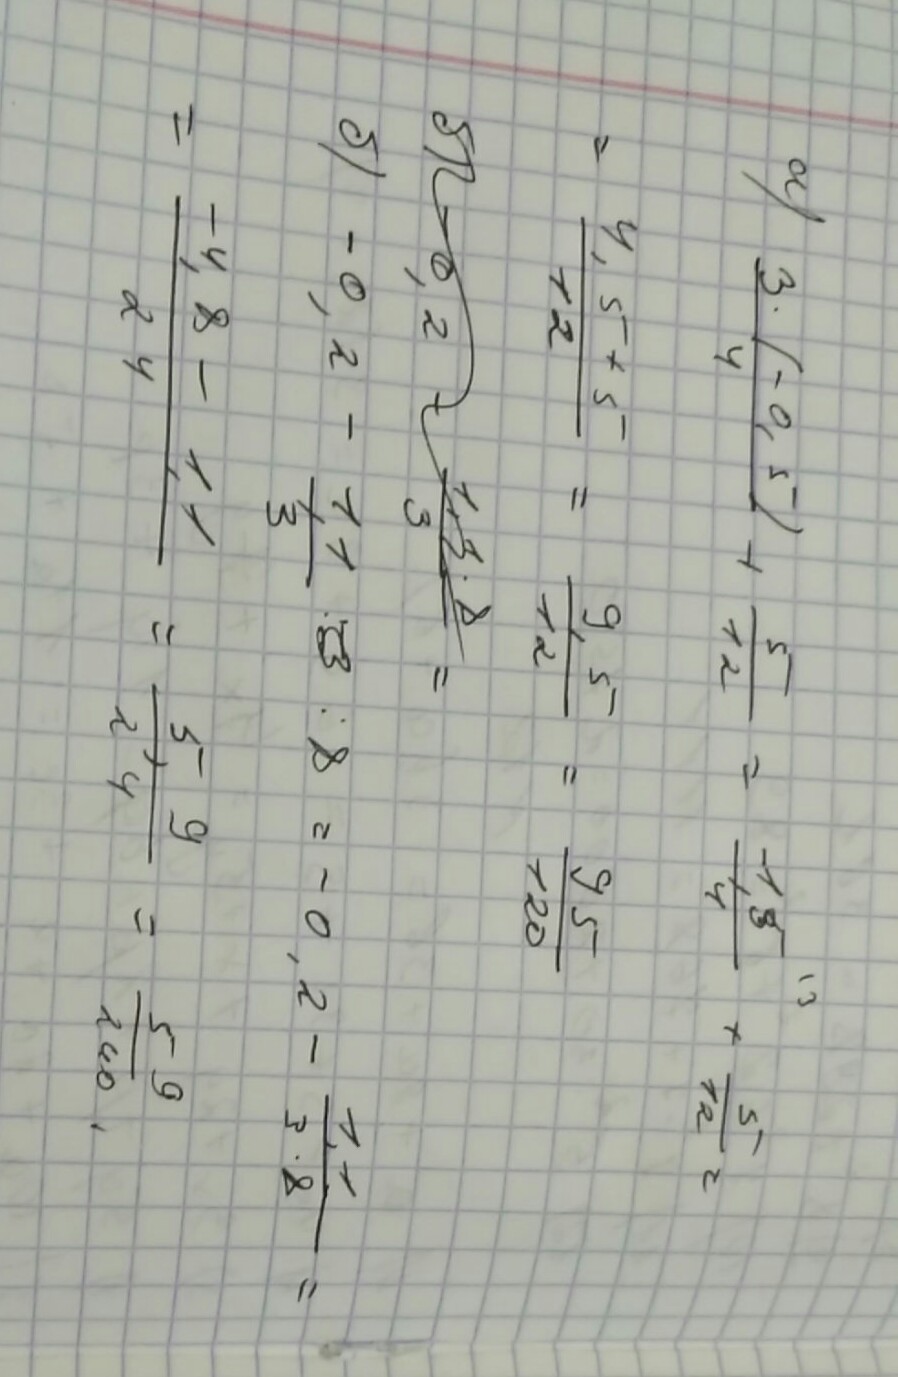 а) 3·(-0,5)/4 + 5/12 = -1,5/4 + 5/12 =
= 4,5+5/12 = 9,5/12 = 95/120
б) -0,2 - 1,1/3 : 8 = -0,2 - 1,1/3·8 =
= -4,8-1,1/24 = 5,9/24 = 59/240